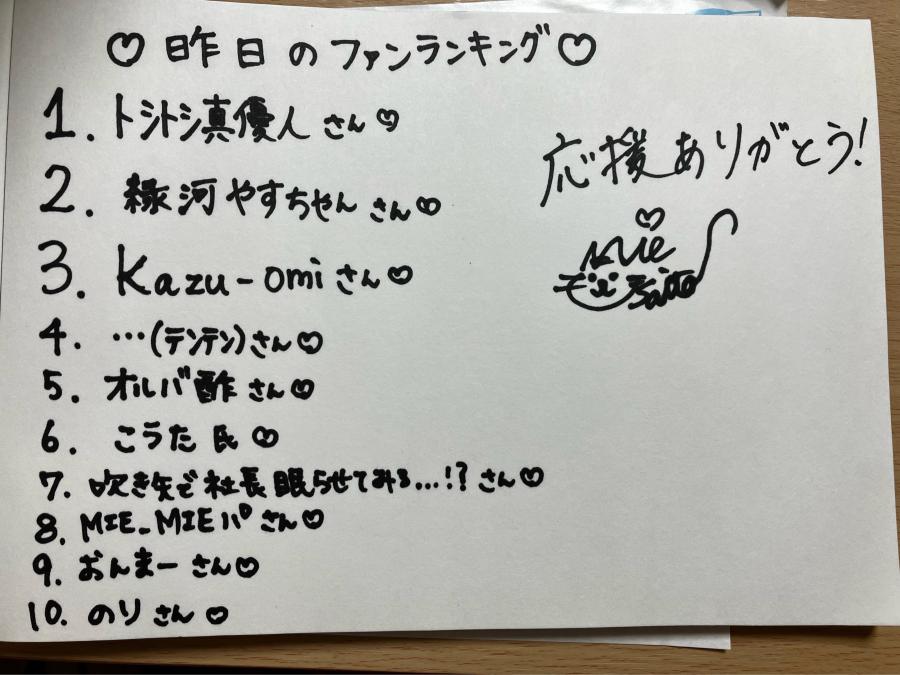 ♡昨日のファンランキング♡
1. トシトシ真優人さん♡
2. 緑河やすちゃんさん♡
3. Kazu-omiさん♡
4. …(テンテン)さん♡
5. オルバ酢さん♡
6. こうた氏♡
7. 吹き矢で社長眠らせてみる…!?さん♡
8. MIE-MIEパさん♡
9. おんまーさん♡
10. のりさん♡
応援ありがとう!
♡
Mie
Saito